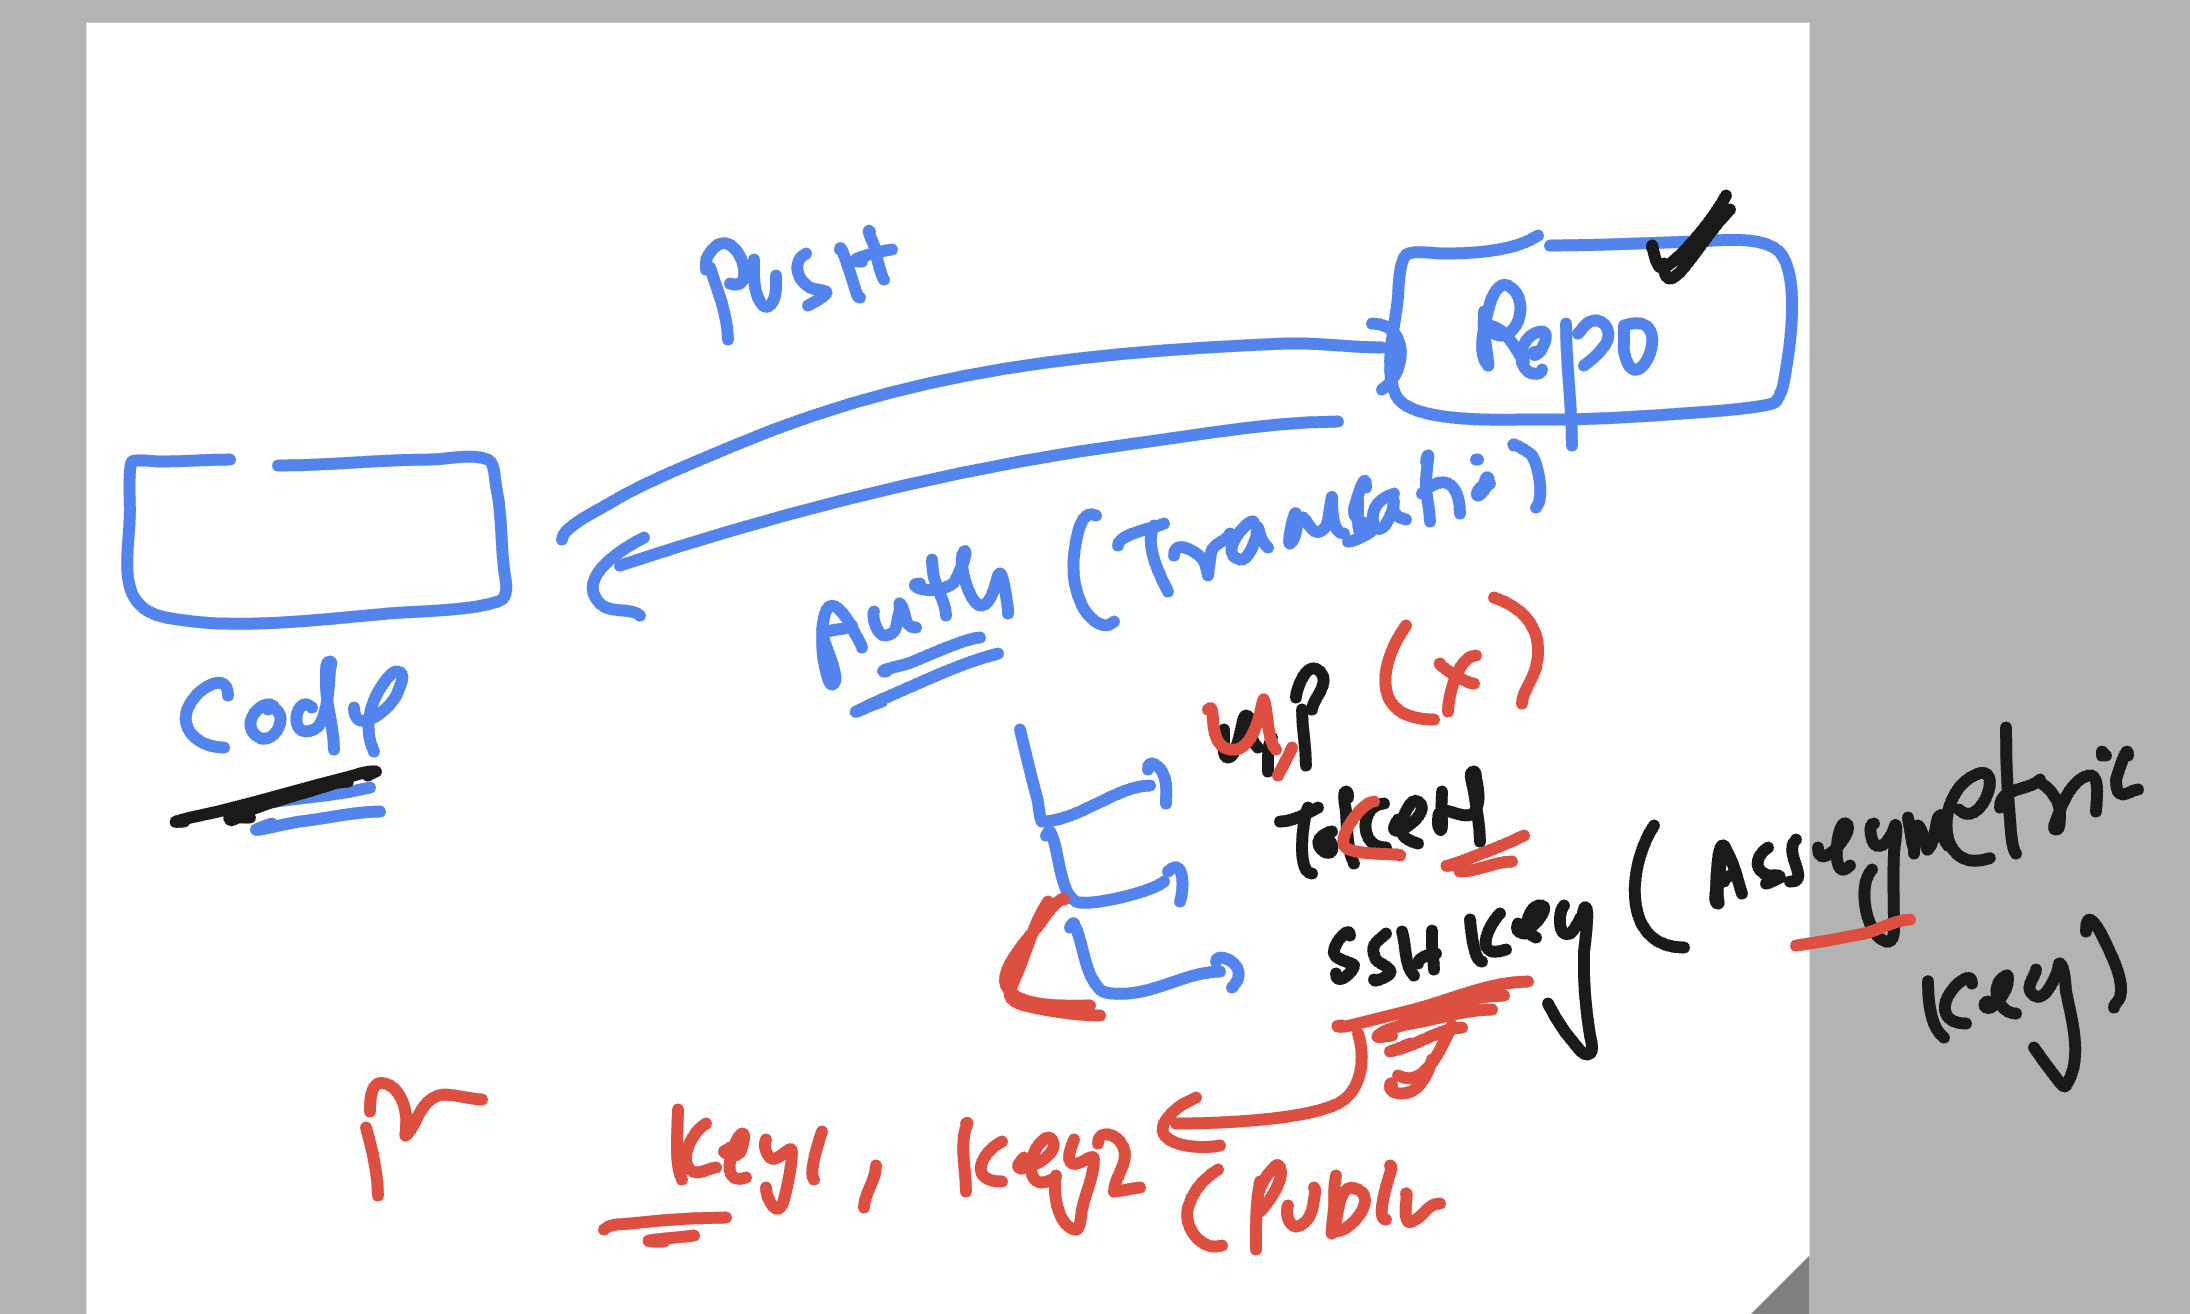 PUSH
Repo
Code
Auth (Transati)
U,P (x)
Token
SSH Key (Asseymetric
Key)
Pr
Key1, Key2
(Public